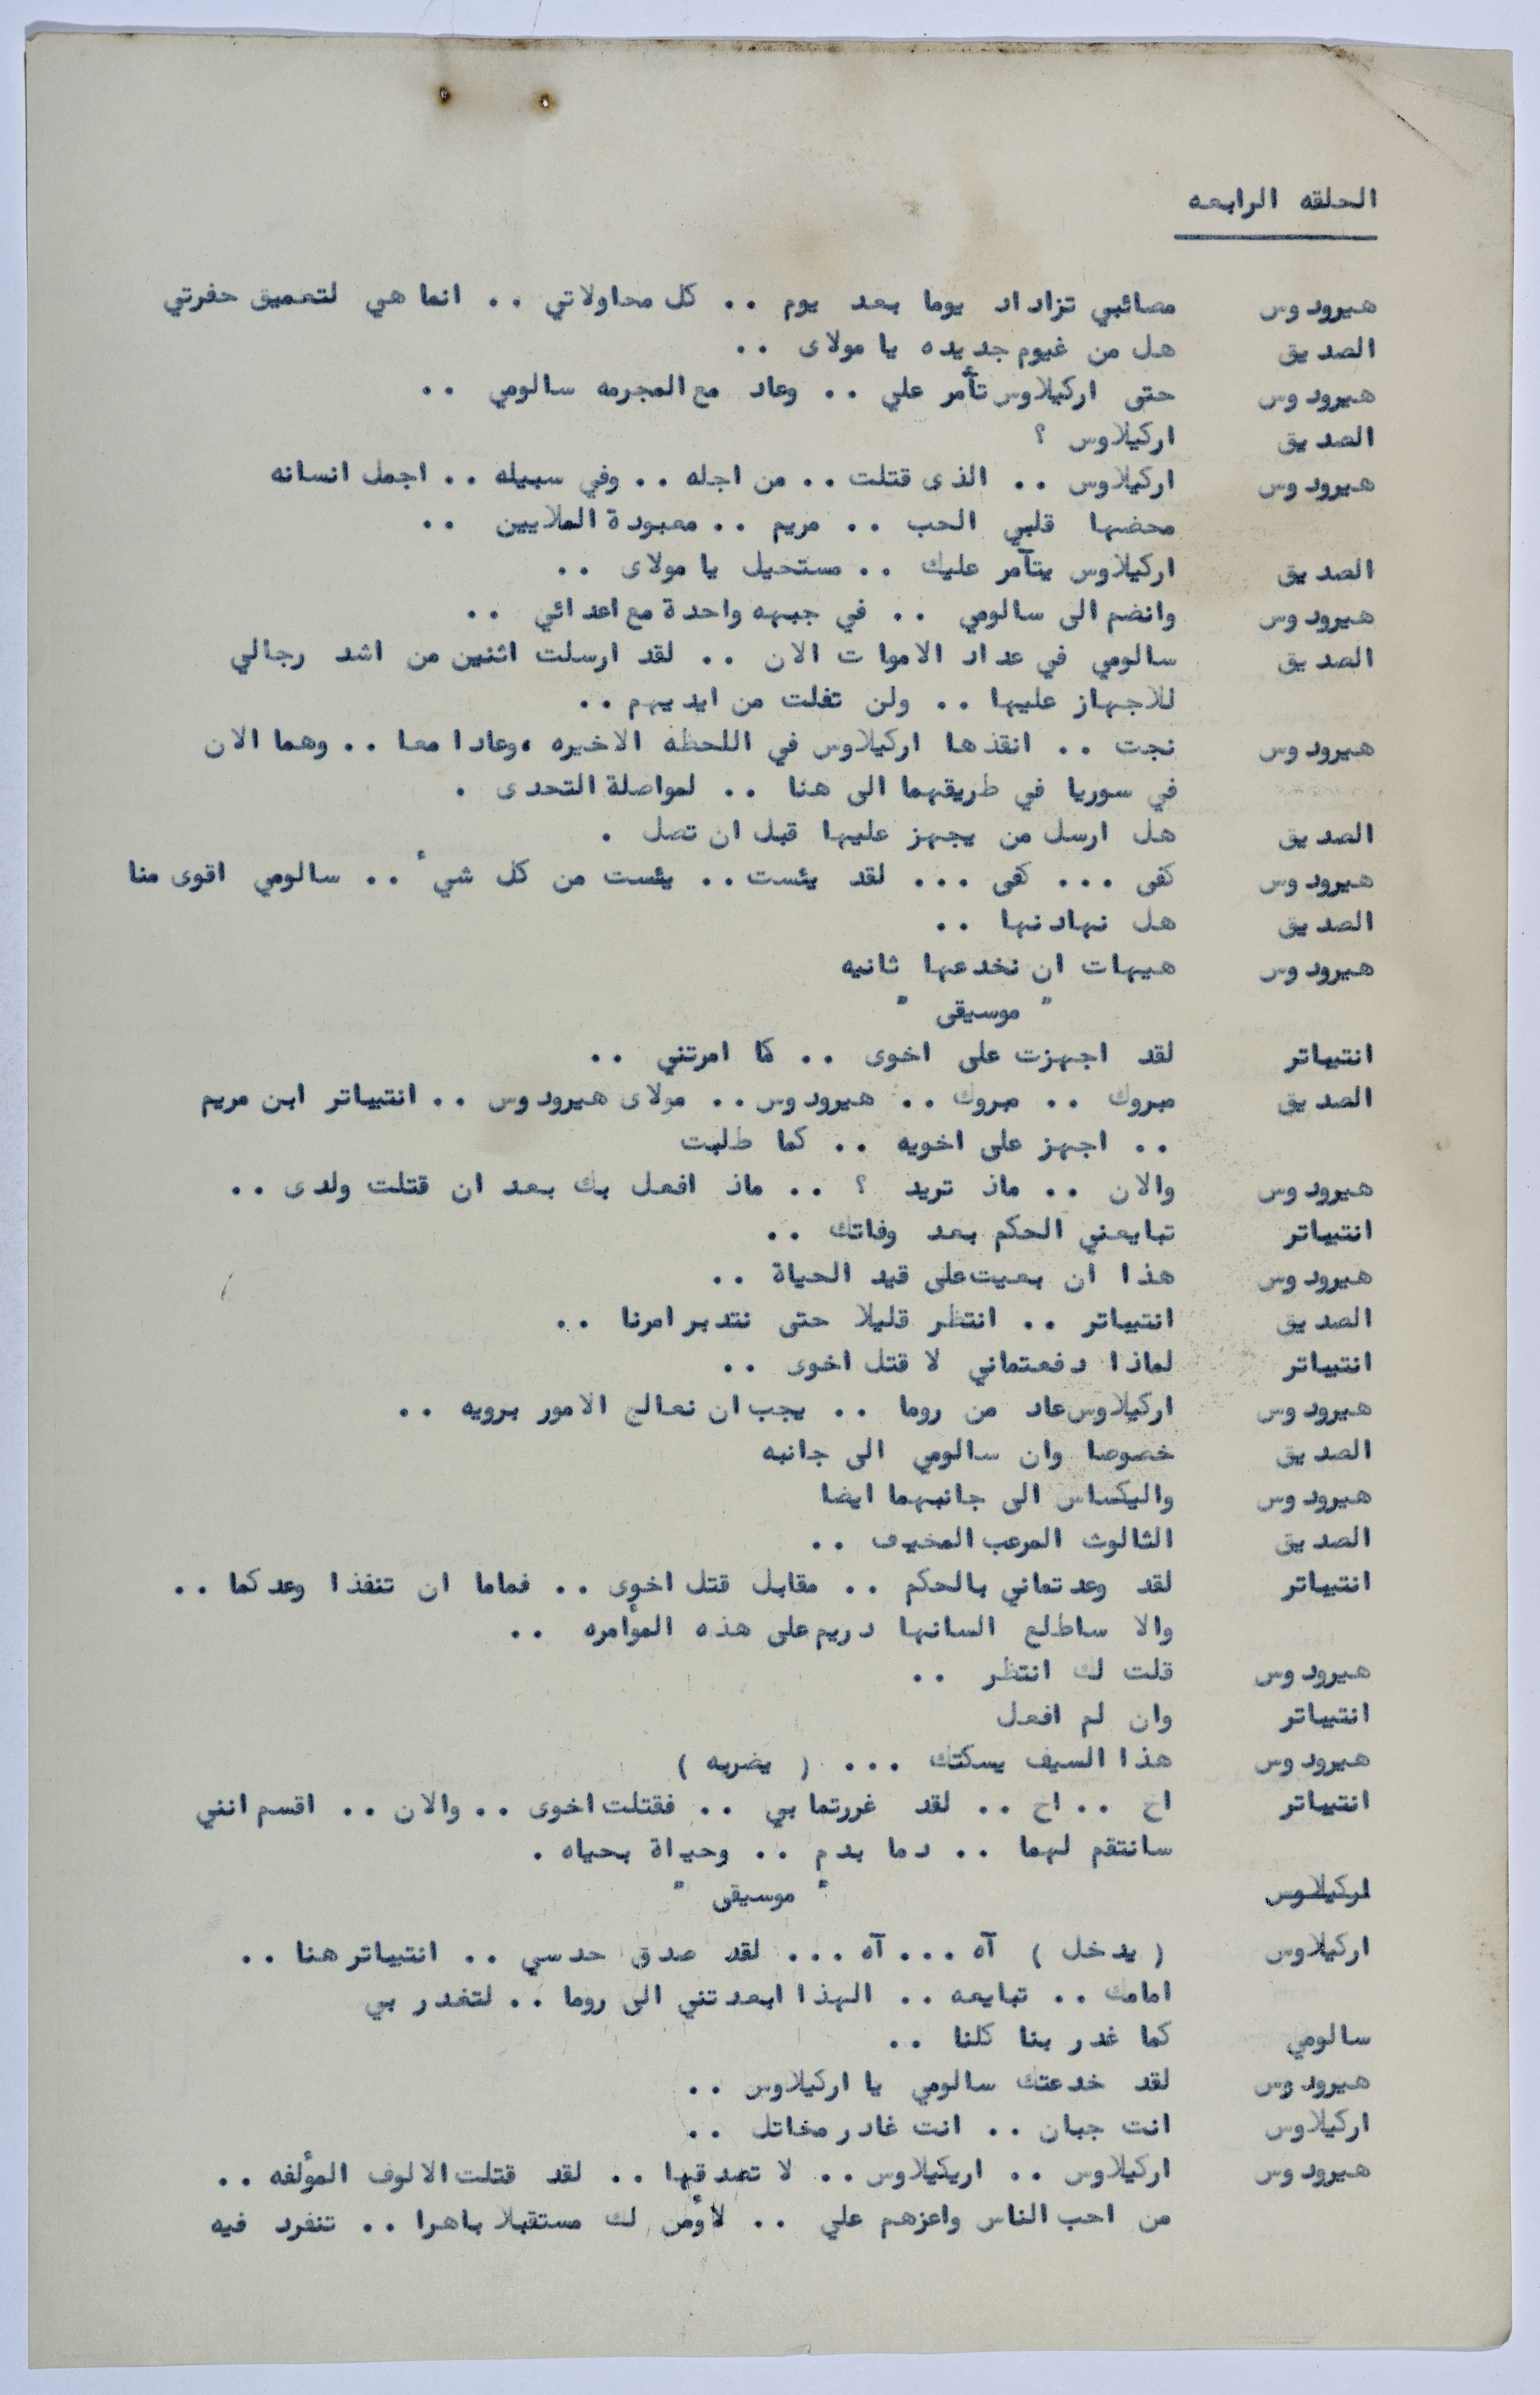 الحلقه الرابعه
هيرودوس مصائبي تزاداد يوما بعد يوم .. كل محاولاتي .. انما هي لتعميق حفرتي
الصديق هل من غيوم جديده يا مولاى ..
هيرودوس حتى اركيلاوس تأمر علي .. وعاد مع المجرمه سالومي ..
الصديق اركيلاوس ؟
هيرودوس اركيلاوس .. الذى قتلت .. من اجله .. وفي سبيله .. اجمل انسانه
محضها قلبي الحب .. مريم .. معبودة الملايين ..
الصديق اركيلاوس يتآمر عليك .. مستحيل يا مولاى ..
هيرودوس وانضم الى سالومي .. في جبهه واحدة مع اعدائي ..
الصديق سالومي في عداد الاموات الان .. لقد ارسلت اثنين من اشد رجالي
للاجهاز عليها .. ولن تفلت من ايديهم ..
هيرودوس نجت .. انقذها اركيلاوس في اللحظه الاخيره ،وعادا معا .. وهما الان
في سوريا في طريقهما الى هنا .. لمواصلة التحدى .
الصديق هل ارسل من يجهز عليها قبل ان تصل .
هيرودوس كفى ... كفى ... لقد يئست .. يئست من كل شيء .. سالومي اقوى منا
الصديق هل نهادنها ..
هيرودوس هيهات ان نخدعها ثانيه
" موسيقى "
انتيباتر لقد اجهزت على اخوى .. كما امرتني ..
الصديق مبروك .. مبروك .. هيرودوس .. مولاى هيرودوس .. انتيباتر ابن مريم
.. اجهز على اخويه .. كما طلبت
هيرودوس والان .. ماذ تريد ؟ .. ماذ افعل بك بعد ان قتلت ولدى ..
انتيباتر تبايعني الحكم بعد وفاتك ..
هيرودوس هذا ان بعيت على قيد الحياة ..
الصديق انتيباتر .. انتظر قليلا حتى نتدبر امرنا ..
انتيباتر لماذا دفعتماني لا قتل اخوى ..
هيرودوس اركيلاوس عاد من روما .. يجب ان نعالج الامور برويه ..
الصديق خصوصا وان سالومي الى جانبه
هيرودوس واليكساس الى جانبهما ايضا
الصديق الثالوث المرعب المخيف ..
انتيباتر لقد وعدتماني بالحكم .. مقابل قتل اخوى .. فماما ان تنفذا وعدكما ..
والا ساطلع السانها دريم على هذه المؤامره ..
هيرودوس قلت لك انتظر ..
انتيباتر وان لم افعل
هيرودوس هذا السيف يسكتك ... ( يضربه )
انتيباتر اخ .. اخ .. لقد غررتما بي .. فقتلت اخوى .. والان .. اقسم انني
سانتقم لهما .. دما بدم .. وحياة بحياه .
اركيلاوس " موسيقى "
اركيلاوس ( يدخل ) آه ... آه ... لقد صدق حدسي .. انتيباتر هنا ..
امامك .. تبايعه .. الهذا ابعدتني الى روما .. لتغدر بي
سالومي كما غدر بنا كلنا ..
هيرودوس لقد خدعتك سالومي يا اركيلاوس ..
اركيلاوس انت جبان .. انت غادر مخاتل ..
هيرودوس اركيلاوس .. اريكيلاوس .. لا تصدقها .. لقد قتلت الالوف المؤلفه ..
من احب الناس واعزهم علي .. لأؤمن لك مستقبلا باهرا .. تنفرد فيه